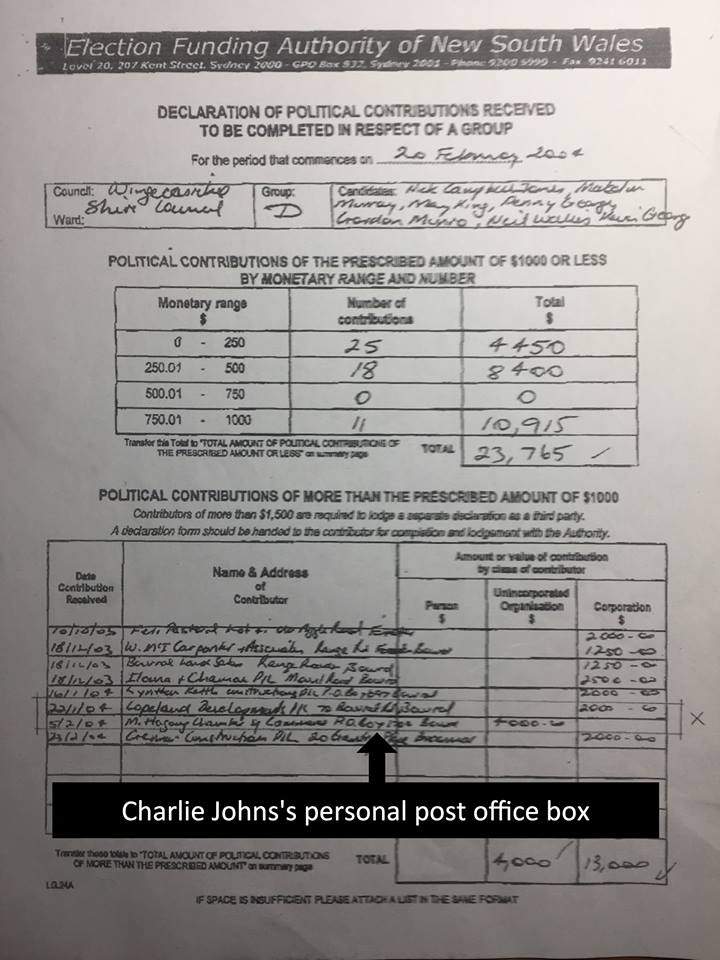 Election Funding Authority of New South Wales
Level 20, 207 Kent Street, Sydney 2000 - GPO Box 832, Sydney 2001 - Phone 9200 5999 - Fax 9241 6011
DECLARATION OF POLITICAL CONTRIBUTIONS RECEIVED
TO BE COMPLETED IN RESPECT OF A GROUP
For the period that commences on 20 February 2004
Council: Wingecarribee Shire Council Group: D Candidates: Nick Campbell-Jones, Malcolm
Murray, May King, Penny George
Ward: Gordon Munro, Neil Kevin George
POLITICAL CONTRIBUTIONS OF THE PRESCRIBED AMOUNT OF $1000 OR LESS
BY MONETARY RANGE AND NUMBER
Monetary range $ Number of contributions Total $
0 - 250 25 4450
250.01 - 500 18 8400
500.01 - 750 0 0
750.01 - 1000 11 10,915
Transfer this Total to "TOTAL AMOUNT OF POLITICAL CONTRIBUTIONS OF
THE PRESCRIBED AMOUNT OR LESS" on summary page TOTAL 23,765
POLITICAL CONTRIBUTIONS OF MORE THAN THE PRESCRIBED AMOUNT OF $1000
Contributors of more than $1,500 are required to lodge a separate declaration as a third party.
A declaration form should be handed to the contributor for completion and lodgement with the Authority.
Date Contribution Received Name & Address of Contributor Amount or value of contribution by class of contributor
Person $ Unincorporated Organisation $ Corporation $
10/10/03 2000-00
18/12/03 W. Carpenter + Associates Range Rd 1250-00
18/12/03 Bowral Land Sales Range Road Bowral 1250-00
18/12/03 P/L Road Bowral 2500-00
16/1/04 Kettle Constructions P/L P.O. Box Bowral 2000-00
22/1/04 Copeland Developments P/L Bowral Rd Bowral 2000-00
5/2/04 Chamber of Commerce 4000-00
23/2/04 Construction P/L 20 2000-00
X
Charlie Johns's personal post office box
Transfer these totals to "TOTAL AMOUNT OF POLITICAL CONTRIBUTIONS
OF MORE THAN THE PRESCRIBED AMOUNT" on summary page TOTAL 4,000 13,000
LG.24A
IF SPACE IS INSUFFICIENT PLEASE ATTACH A LIST IN THE SAME FORMAT